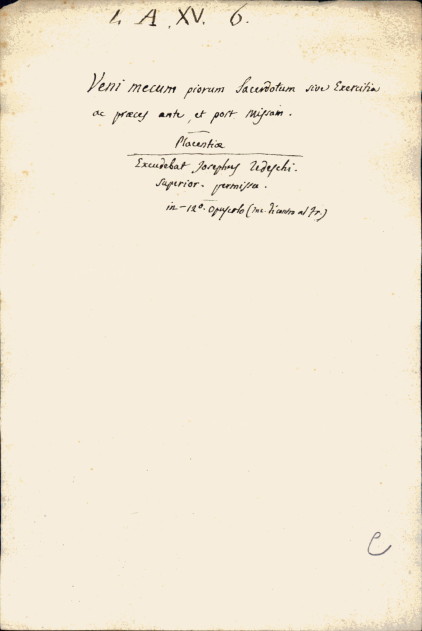 L A XV. 6.
Veni mecum piorum Sacerdotum sive Exercitia
ac præces ante, et post Missam.
Placentiæ
Excudebat Josephus Tedeschi.
Superior. permissa.
in-12º. Opuscolo (
C